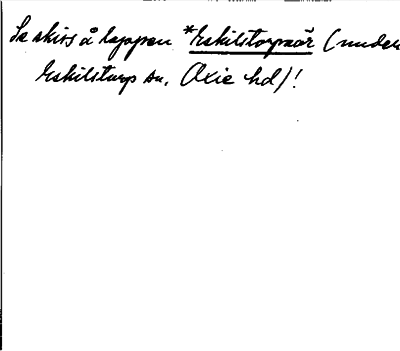 Se skiss å lappen *Eskilstorpsör (under
Eskilstorps sn, Oxie hd)!